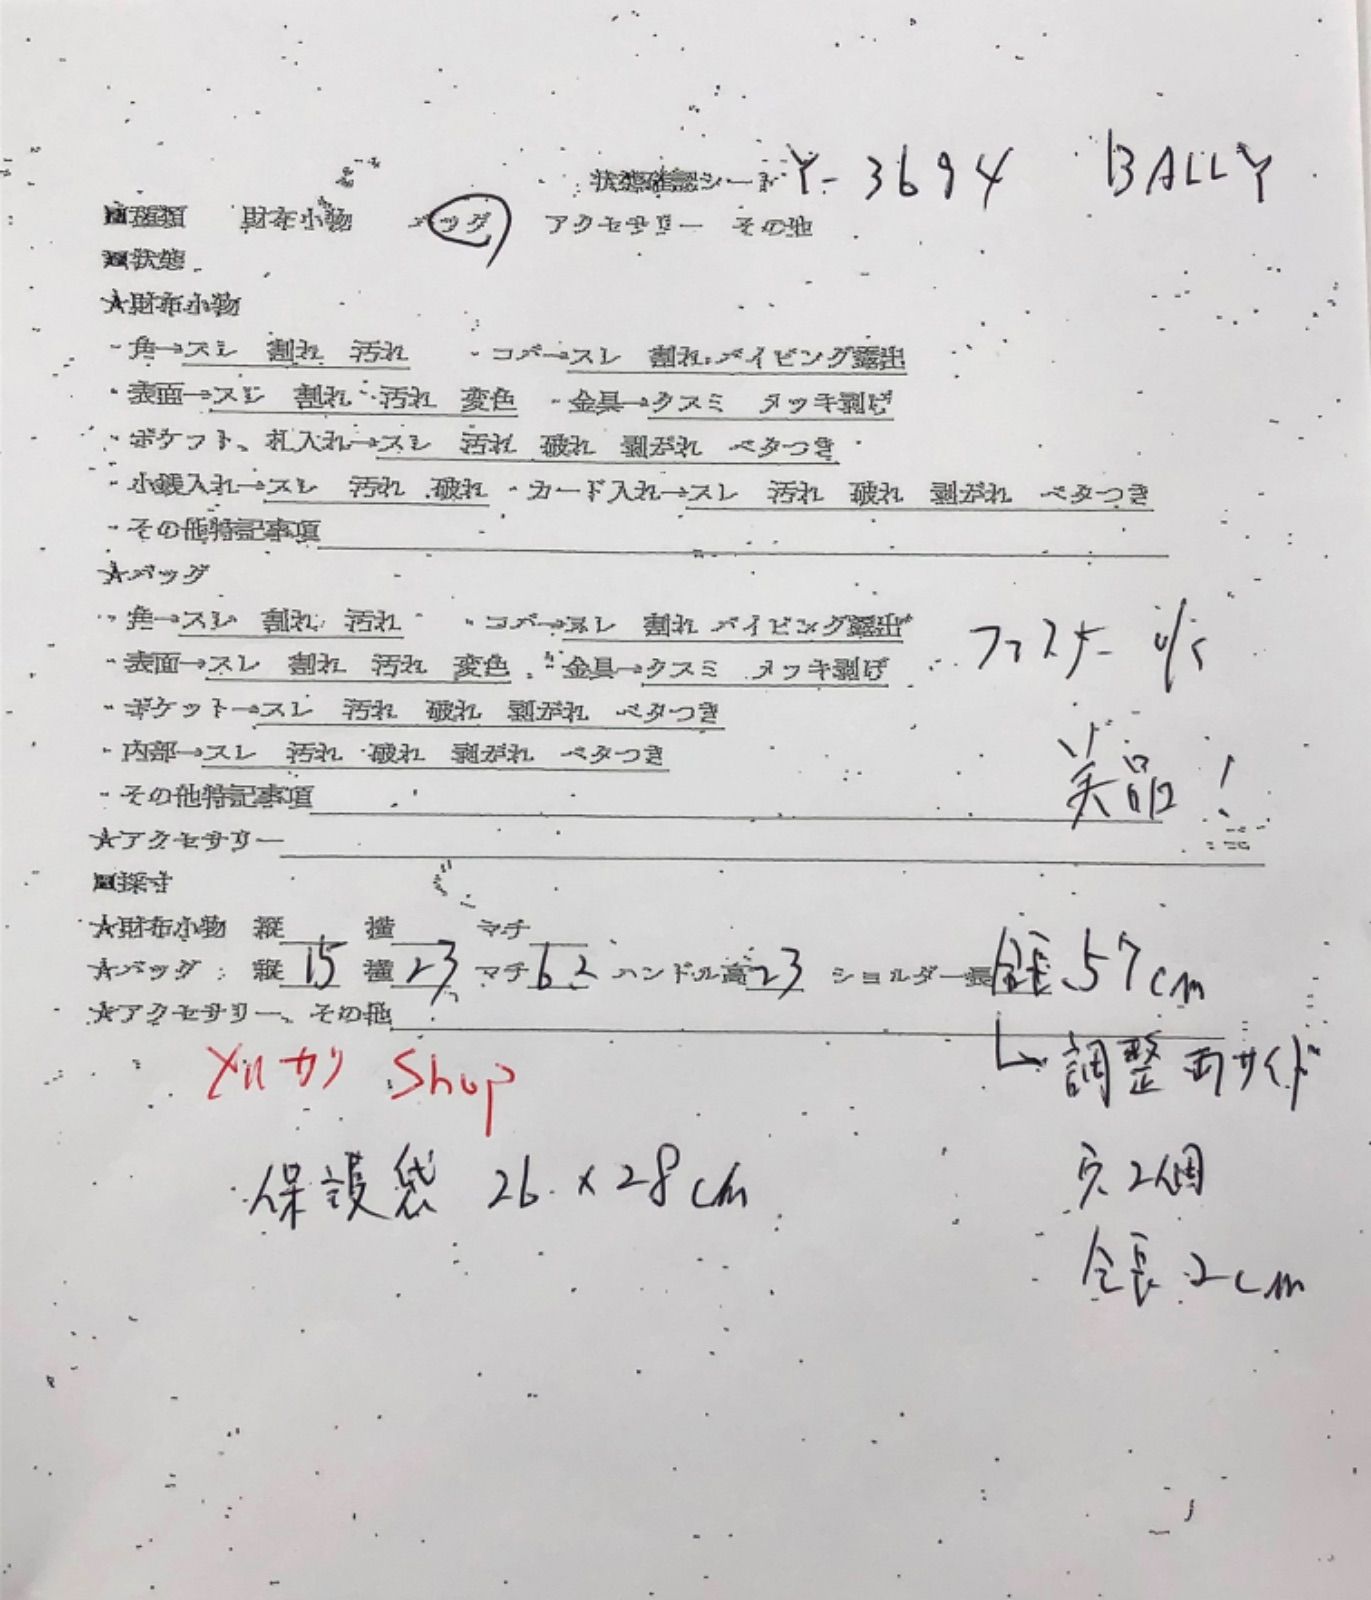 状態確認シート Y-3694 BALLY
■種類 財布小物 バッグ アクセサリー その他
■状態
★財布小物
・角→スレ 割れ 汚れ ・コバ→スレ 割れ パイピング露出
・表面→スレ 割れ 汚れ 変色 ・金具→クスミ メッキ剥げ
・ポケット、札入れ→スレ 汚れ 破れ 剥がれ ベタつき
・小銭入れ→スレ 汚れ 破れ ・カード入れ→スレ 汚れ 破れ 剥がれ ベタつき
・その他特記事項
★バッグ
・角→スレ 割れ 汚れ ・コバ→スレ 割れ パイピング露出
・表面→スレ 割れ 汚れ 変色 ・金具→クスミ メッキ剥げ
ファスナー
・ポケット→スレ 汚れ 破れ 剥がれ ベタつき
・内部→スレ 汚れ 破れ 剥がれ ベタつき
美品!
・その他特記事項
★アクセサリー
■採寸
★財布小物 縦 横 マチ
★バッグ 縦 15 横 23 マチ 6.2 ハンドル高 23 ショルダー長 57cm
★アクセサリー、その他
調整 両サイド
メルカリ Shop
穴2個
保護袋 26×28cm
全長 2cm